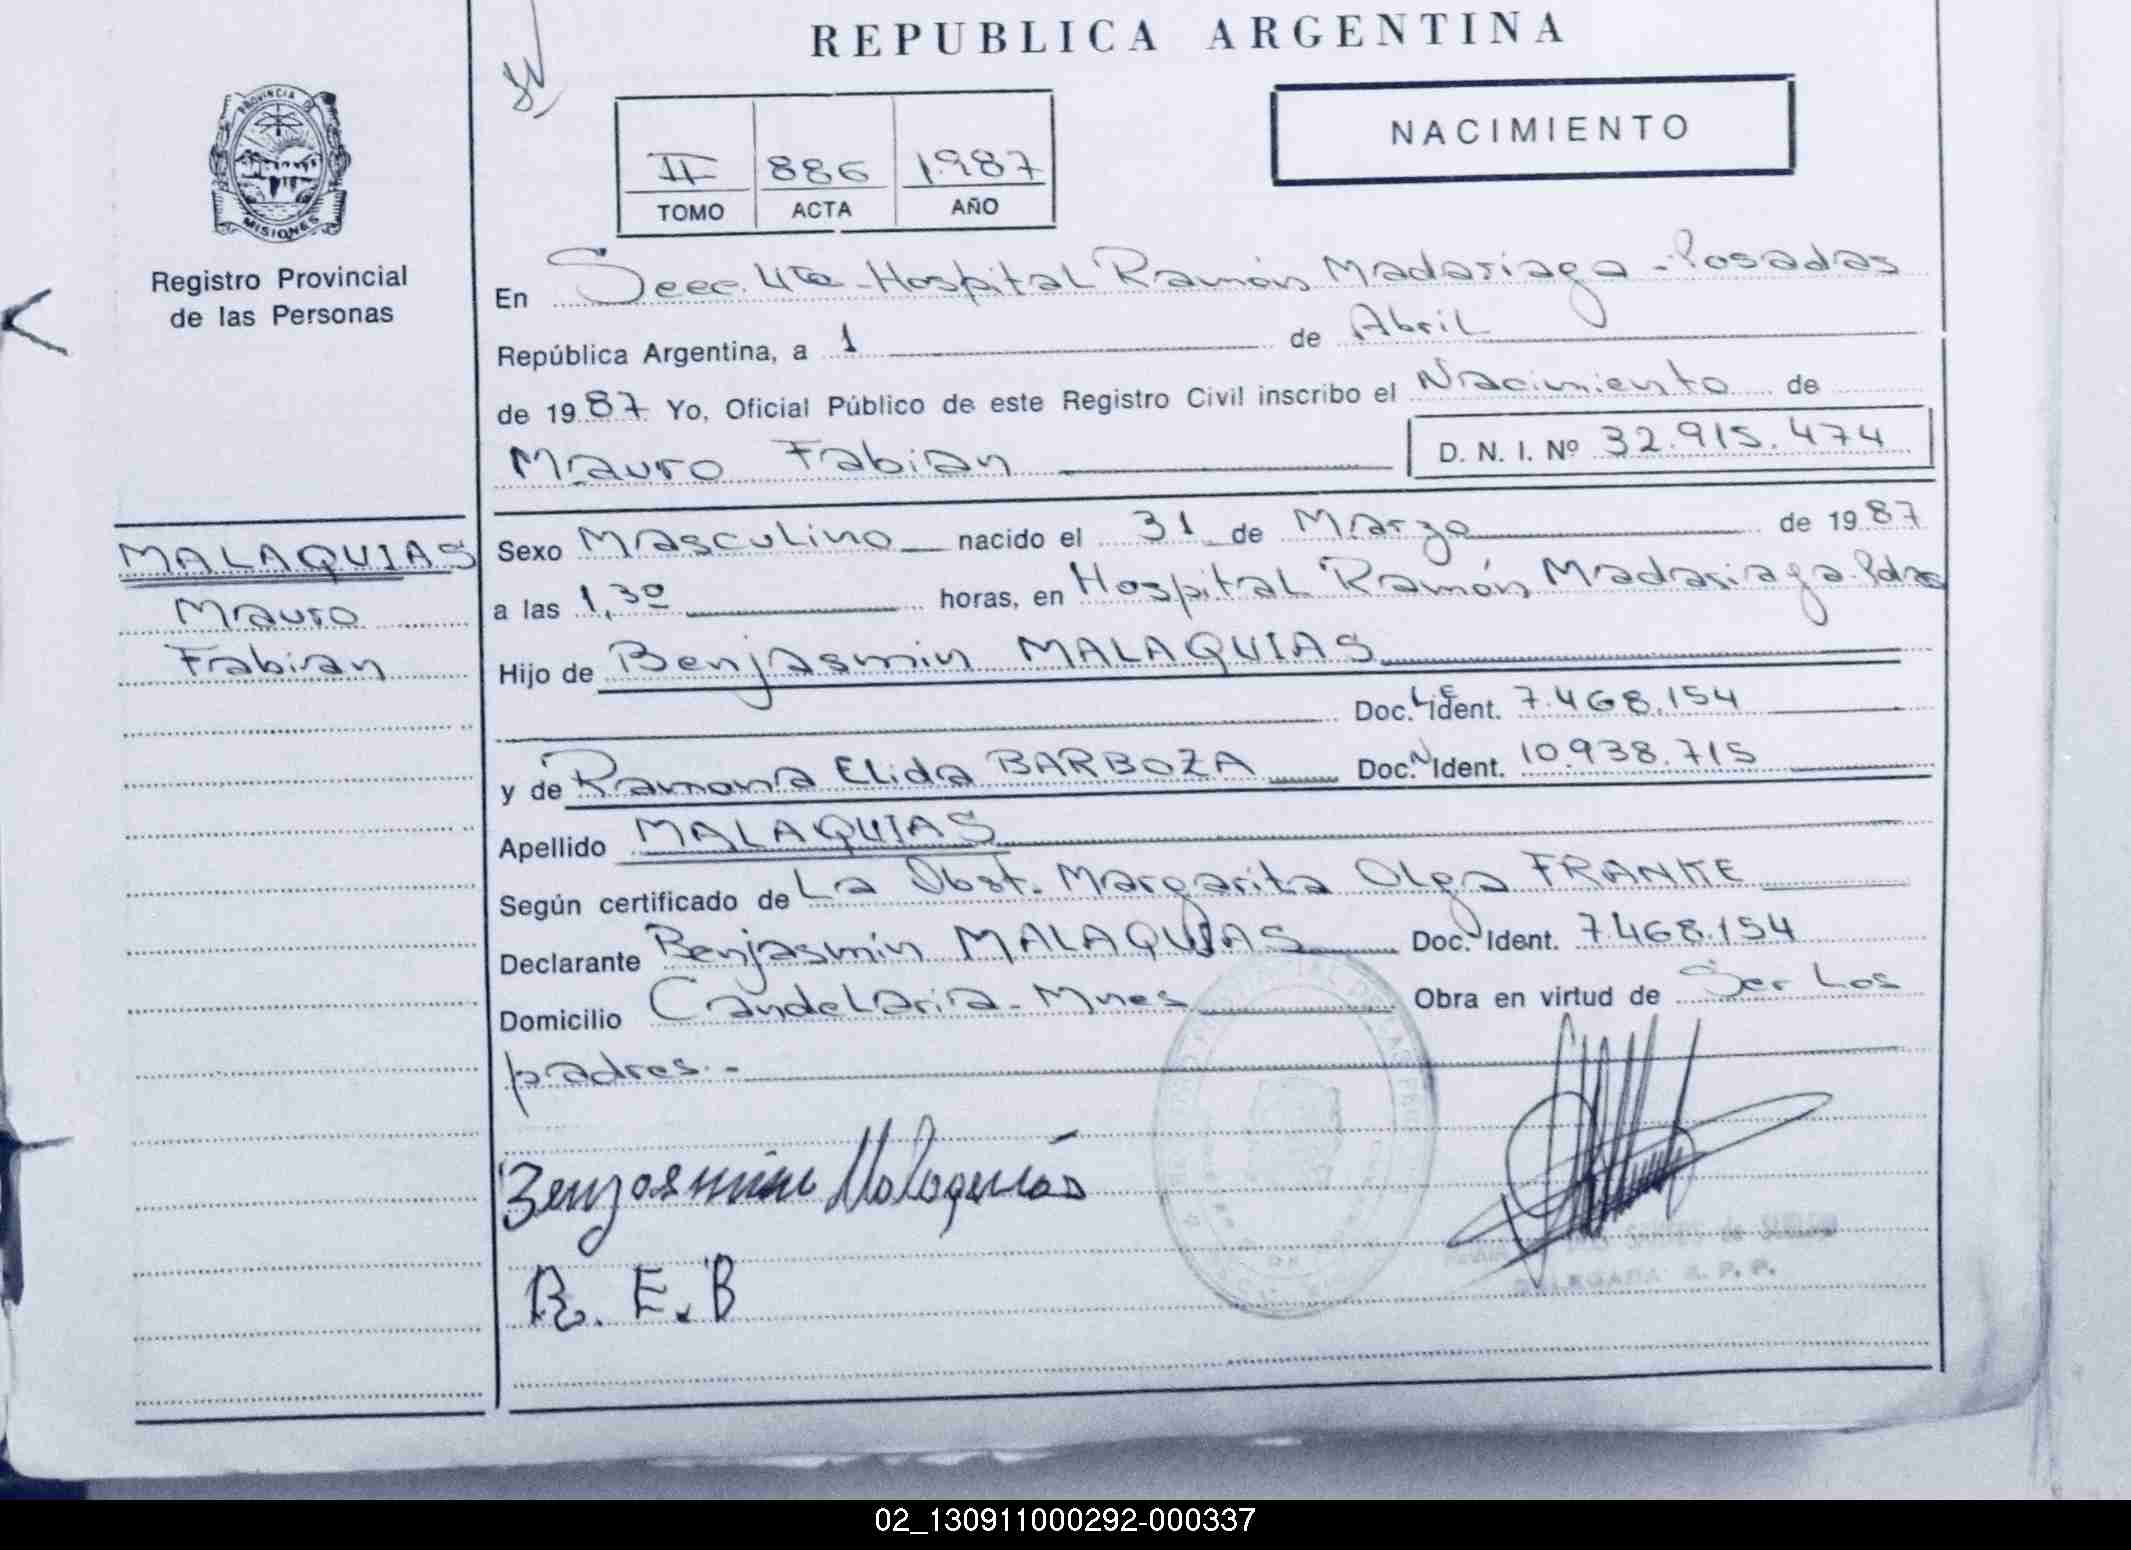 REPUBLICA ARGENTINA
NACIMIENTO
II 886 1987
TOMO ACTA AÑO
PROVINCIA DE
MISIONES
Registro Provincial
de las Personas
En Secc. 4ta - Hospital Ramón Madariaga - Posadas
República Argentina, a 1 de Abril
de 1987 Yo, Oficial Público de este Registro Civil inscribo el Nacimiento de
Mauro Fabian D. N. I. Nº 32.915.474
MALAQUIAS
Mauro
Fabian
Sexo Masculino nacido el 31 de Marzo de 1987
a las 1,30 horas, en Hospital Ramón Madariaga-Pdas
Hijo de Benjasmin MALAQUIAS
Doc. LE Ident. 7.468.154
y de Ramona Elida BARBOZA Doc. N Ident. 10.938.715
Apellido MALAQUIAS
Según certificado de La Obst. Margarita Olga FRANKE
Declarante Benjasmin MALAQUIAS Doc. Ident. 7.468.154
Domicilio Candelaria - Mnes Obra en virtud de Ser Los
padres.-
Benjasmin Malaquias
R. E. B
DELEGADA R. P. P.
02_130911000292-000337